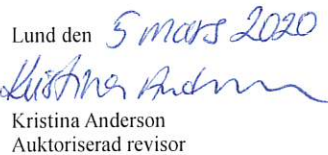 Lund den 5 mars 2020
Kristina Anderson
Kristina Anderson
Auktoriserad revisor